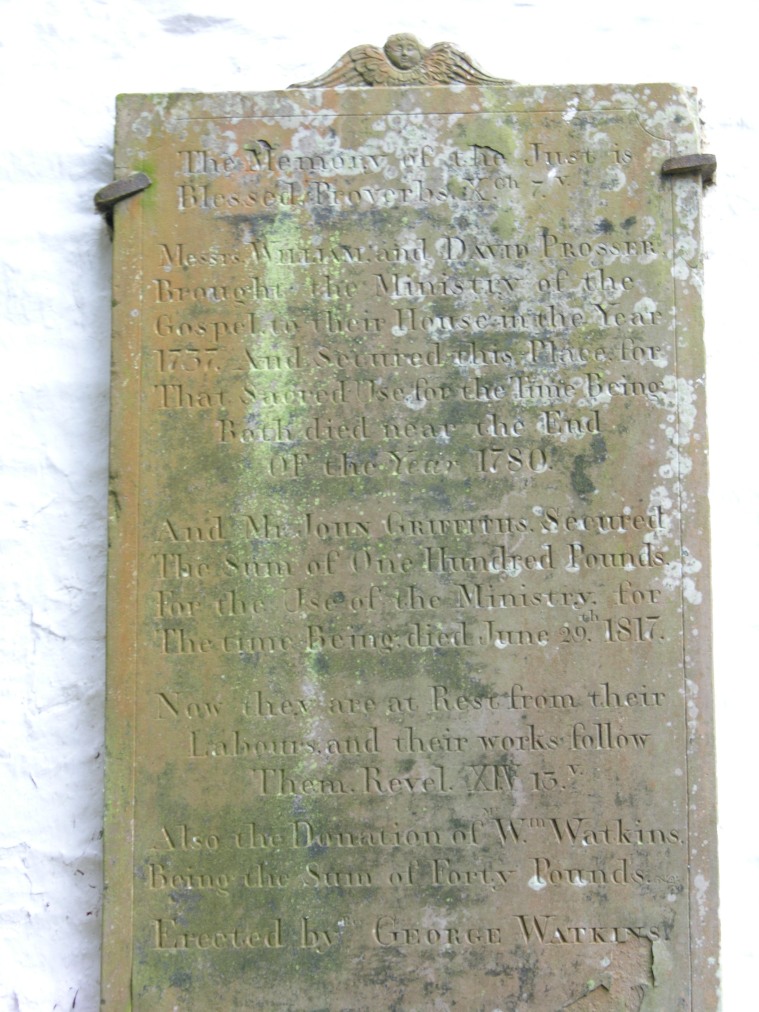 The Memory of the Just is
Blessed. Proverbs. X.ch 7.v
Messrs. WILLIAM. and DAVID PROSSER.
Brought the Ministry of the
Gospel. to their House. in the Year
1737. And Secured this Place. for
That Sacred Use. for the Time Being.
Both died near the End
OF the Year 1780.
And Mr. JOHN GRIFFITHS. Secured
The Sum of One Hundred Pounds.
For the Use of the Ministry. for
The time Being. died June 29.th 1817.
Now they are at Rest from their
Labours. and their works follow
Them. Revel. XIV 13.v
Also the Donation of Mr Wm Watkins.
Being the Sum of Forty Pounds.
Erected by Mr GEORGE WATKINS.